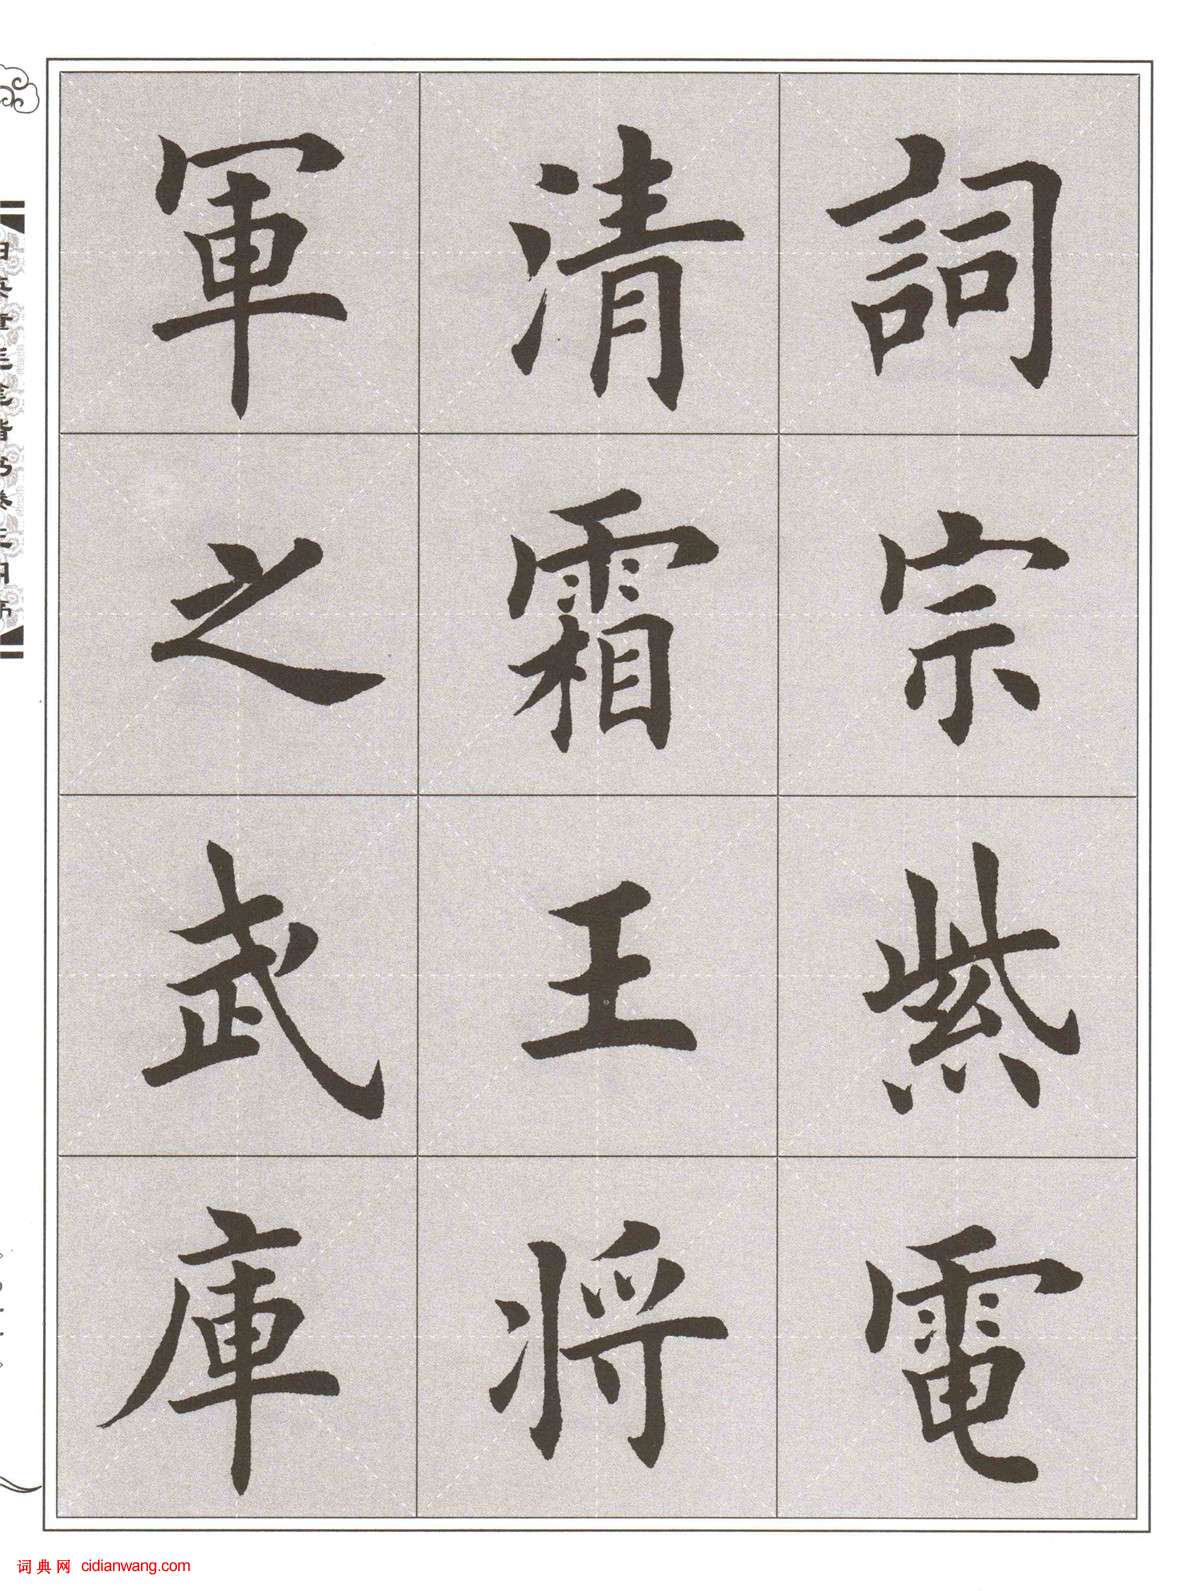 詞宗紫電
清霜王将
軍之武庫
田英章毛笔楷书卷之四
词典网 cidianwang.com